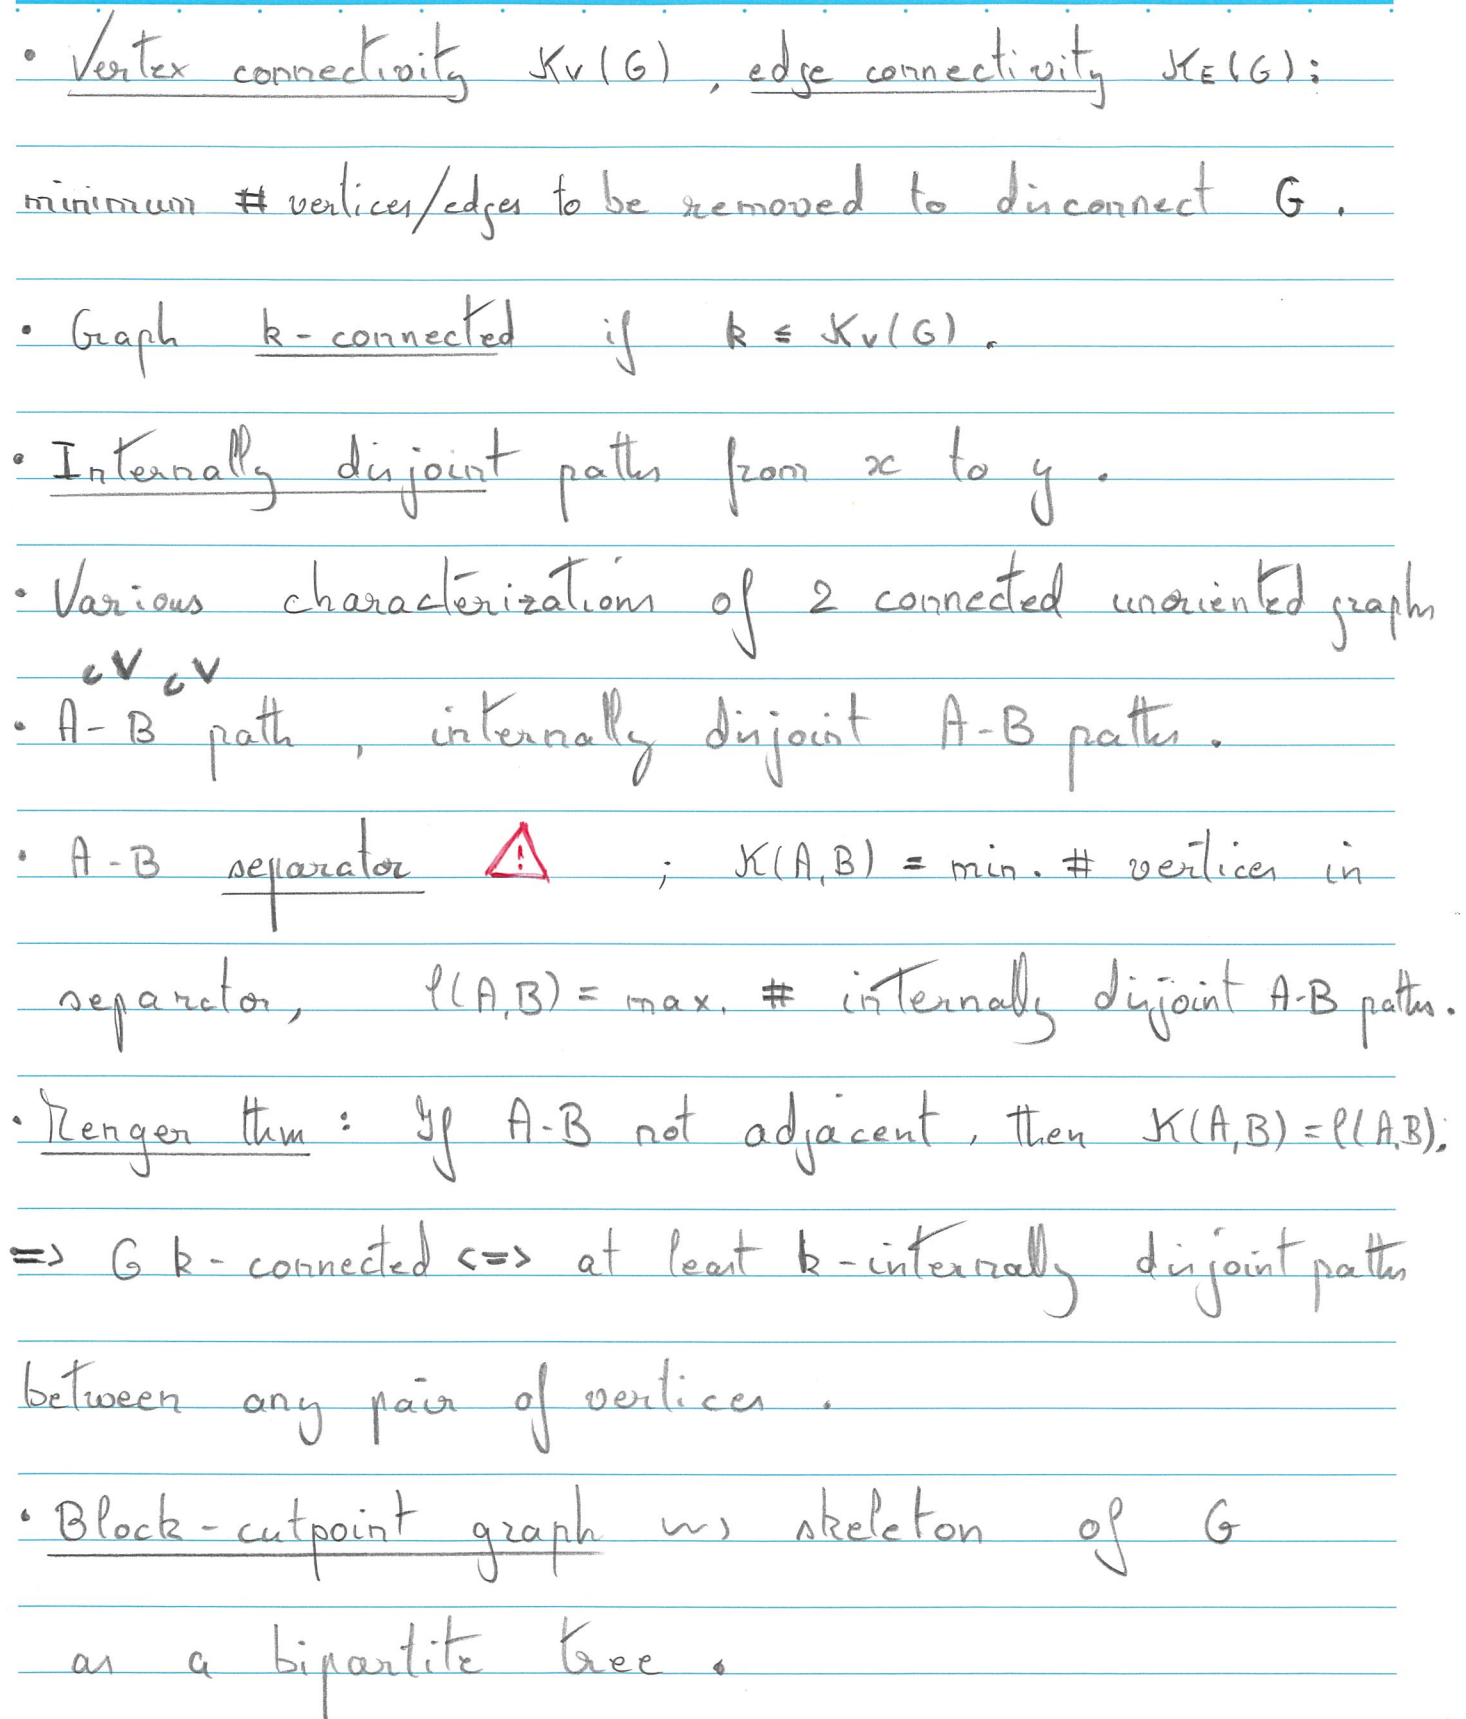 • Vertex connectivity κ_V(G), edge connectivity κ_E(G):
minimum # vertices/edges to be removed to disconnect G.
• Graph k-connected if k ≤ κ_V(G).
• Internally disjoint paths from x to y.
• Various characterizations of 2 connected unoriented graphs
⊂V ⊂V
• A-B path, internally disjoint A-B paths.
• A-B separator ⚠ ; κ(A,B) = min. # vertices in
separator, ℓ(A,B) = max. # internally disjoint A-B paths.
• Menger thm: If A-B not adjacent, then κ(A,B) = ℓ(A,B).
=> G k-connected <=> at least k-internally disjoint paths
between any pair of vertices.
• Block-cutpoint graph ⇝ skeleton of G
as a bipartite tree.